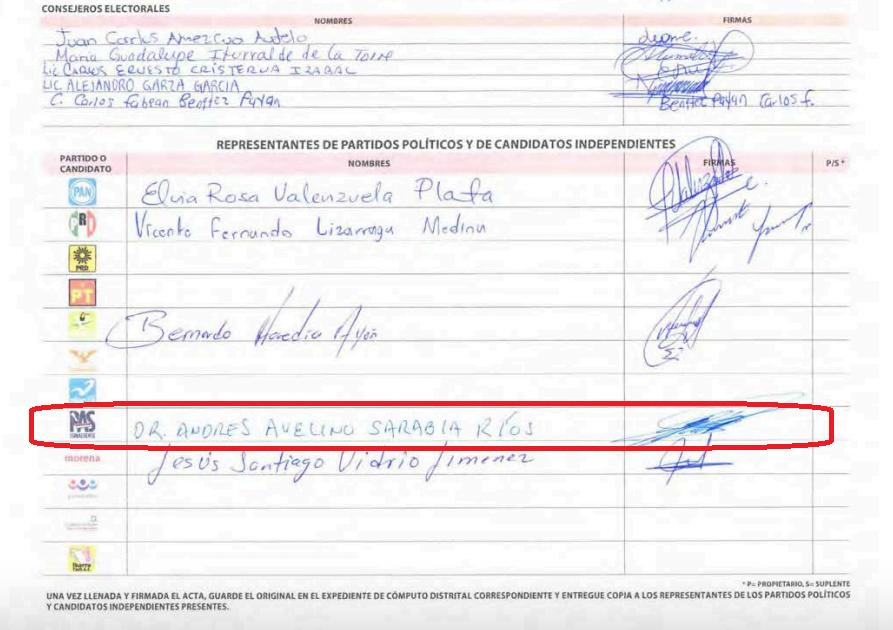 CONSEJEROS ELECTORALES
NOMBRES FIRMAS
Juan Carlos Amezcua
Maria Guadalupe Iturralde de la Torre
LIC CARLOS ERNESTO CRISTERNA IZABAL
LIC. ALEJANDRO GARZA GARCIA
C. Carlos Fabean Benítez Payan Benítez Payan Carlos F.
REPRESENTANTES DE PARTIDOS POLÍTICOS Y DE CANDIDATOS INDEPENDIENTES
PARTIDO O CANDIDATO NOMBRES FIRMAS P/S*
PAN Elvia Rosa Valenzuela Plata
PRI Vicente Fernando Lizarraga Medina
PRD
PT
Bernardo Heredia
PAS DR. ANDRES AVELINO SARABIA RÍOS
morena Jesús Santiago Vidrio Jimenez
* P= PROPIETARIO, S= SUPLENTE
UNA VEZ LLENADA Y FIRMADA EL ACTA, GUARDE EL ORIGINAL EN EL EXPEDIENTE DE CÓMPUTO DISTRITAL CORRESPONDIENTE Y ENTREGUE COPIA A LOS REPRESENTANTES DE LOS PARTIDOS POLÍTICOS
Y CANDIDATOS INDEPENDIENTES PRESENTES.